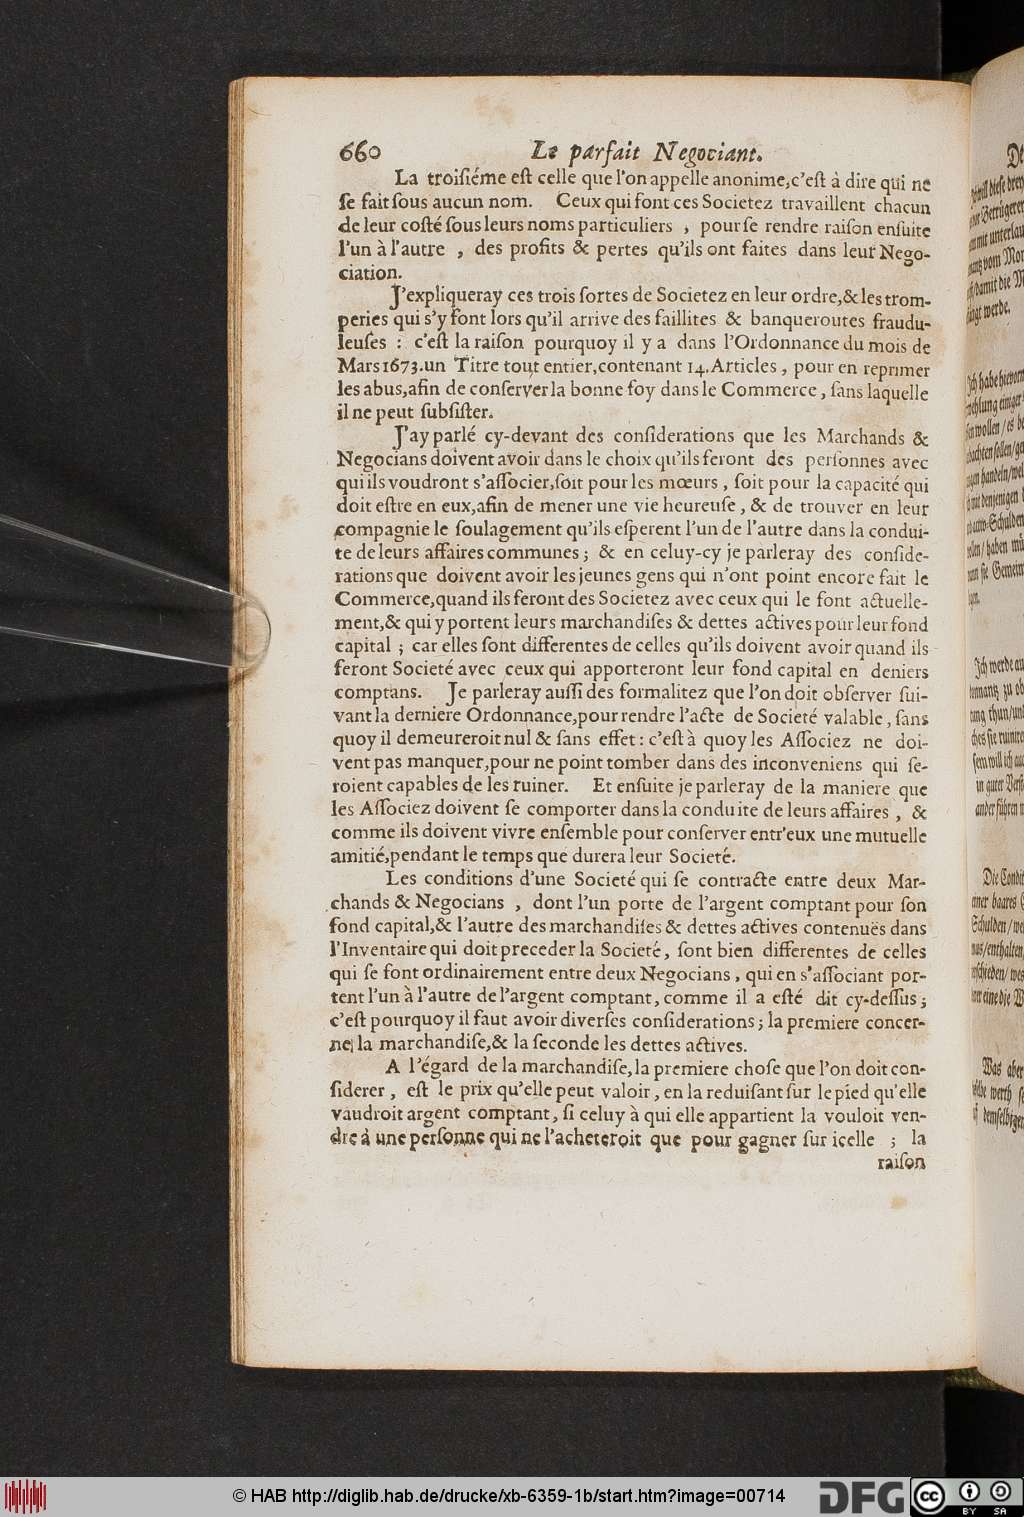 660 Le parfait Negociant.
La troisiéme est celle que l'on appelle anonime, c'est à dire qui ne
se fait sous aucun nom. Ceux qui font ces Societez travaillent chacun
de leur costé sous leurs noms particuliers , pour se rendre raison ensuite
l'un à l'autre , des profits & pertes qu'ils ont faites dans leur Nego-
ciation.
J'expliqueray ces trois sortes de Societez en leur ordre, & les trom-
peries qui s'y font lors qu'il arrive des faillites & banqueroutes fraudu-
leuses : c'est la raison pourquoy il y a dans l'Ordonnance du mois de
Mars 1673. un Titre tout entier, contenant 14. Articles, pour en reprimer
les abus, afin de conserver la bonne foy dans le Commerce, sans laquelle
il ne peut subsister.
J'ay parlé cy-devant des considerations que les Marchands &
Negocians doivent avoir dans le choix qu'ils feront des personnes avec
qui ils voudront s'associer, soit pour les mœurs, soit pour la capacité qui
doit estre en eux, afin de mener une vie heureuse, & de trouver en leur
compagnie le soulagement qu'ils esperent l'un de l'autre dans la condui-
te de leurs affaires communes; & en celuy-cy je parleray des conside-
rations que doivent avoir les jeunes gens qui n'ont point encore fait le
Commerce, quand ils feront des Societez avec ceux qui le font actuelle-
ment, & qui y portent leurs marchandises & dettes actives pour leur fond
capital ; car elles sont differentes de celles qu'ils doivent avoir quand ils
feront Societé avec ceux qui apporteront leur fond capital en deniers
comptans. Je parleray aussi des formalitez que l'on doit observer sui-
vant la derniere Ordonnance, pour rendre l'acte de Societé valable, sans
quoy il demeureroit nul & sans effet: c'est à quoy les Associez ne doi-
vent pas manquer, pour ne point tomber dans des inconveniens qui se-
roient capables de les ruiner. Et ensuite je parleray de la maniere que
les Associez doivent se comporter dans la conduite de leurs affaires , &
comme ils doivent vivre ensemble pour conserver entr'eux une mutuelle
amitié, pendant le temps que durera leur Societé.
Les conditions d'une Societé qui se contracte entre deux Mar-
chands & Negocians , dont l'un porte de l'argent comptant pour son
fond capital, & l'autre des marchandises & dettes actives contenuës dans
l'Inventaire qui doit preceder la Societé, sont bien differentes de celles
qui se font ordinairement entre deux Negocians, qui en s'associant por-
tent l'un à l'autre de l'argent comptant, comme il a esté dit cy-dessus;
c'est pourquoy il faut avoir diverses considerations; la premiere concer-
ne la marchandise, & la seconde les dettes actives.
A l'égard de la marchandise, la premiere chose que l'on doit con-
siderer, est le prix qu'elle peut valoir, en la reduisant sur le pied qu'elle
vaudroit argent comptant, si celuy à qui elle appartient la vouloit ven-
dre à une personne qui ne l'acheteroit que pour gagner sur icelle ; la
raison
© HAB http://diglib.hab.de/drucke/xb-6359-1b/start.htm?image=00714
DFG
cc BY SA